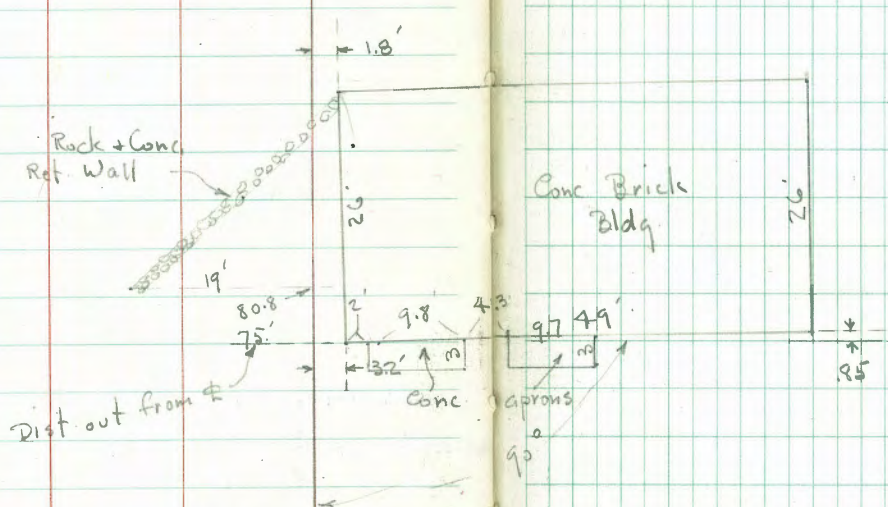 1.8'
Rock + Conc
Ret. Wall
26'
Conc Brick
Bldg
26'
19'
80.8
75.'
2'
9.8'
4.3'
9.7
49'
3
3
3.2'
.85
Conc
aprons
Dist out from ℄
90°